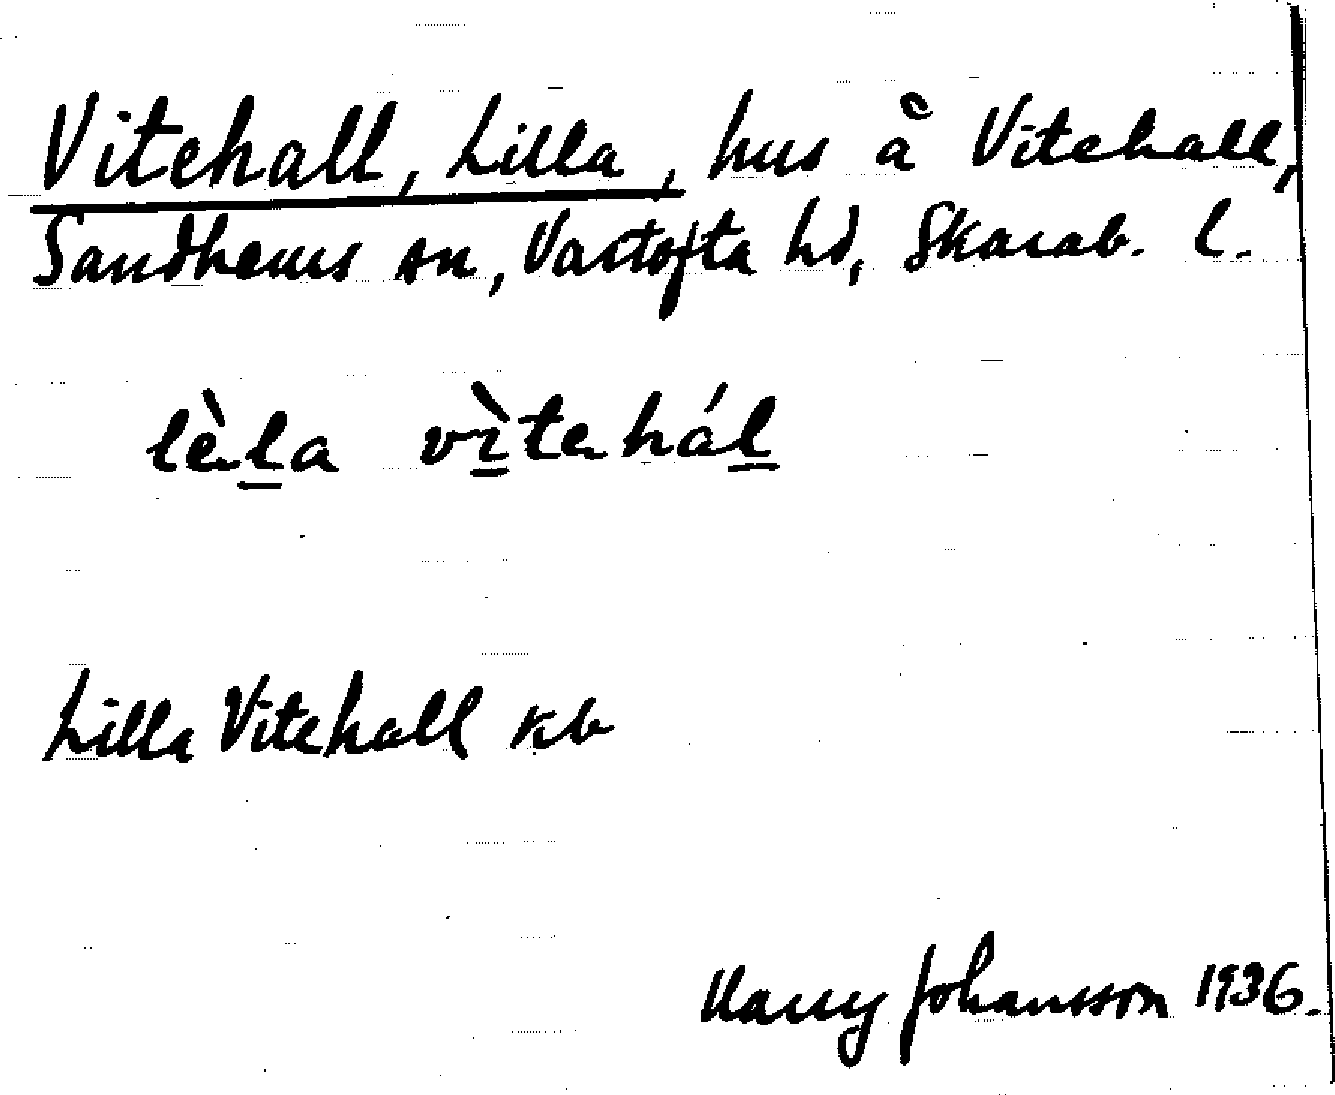 Vitehall, Lilla, hus å Vitehall,
Sandhems sn, Vartofta hd, Skarab. l.
lèl̲a vì̲tehál̲
Lilla Vitehall kb
Harry Johansson 1936.